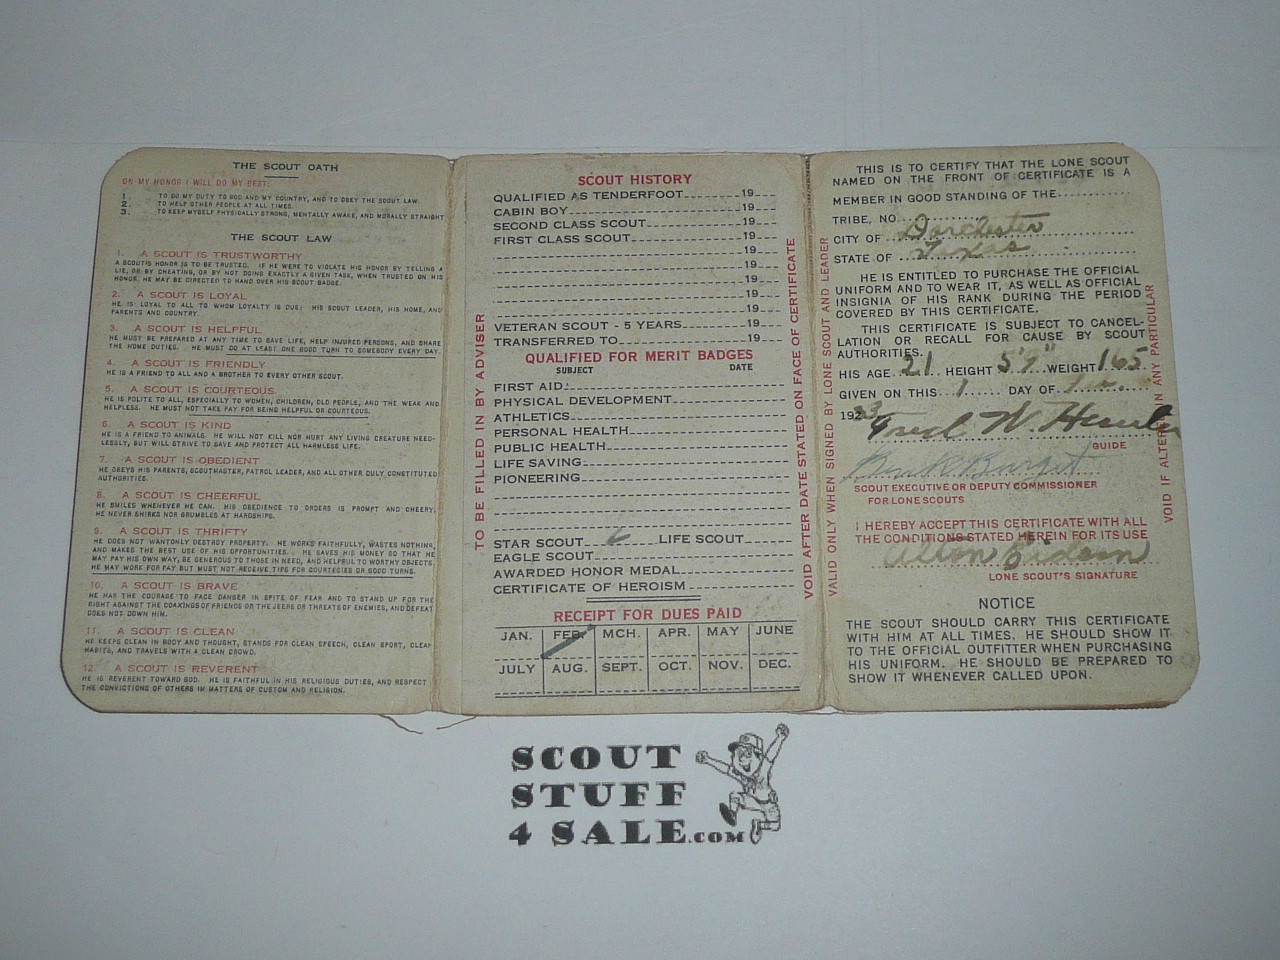 THE SCOUT OATH
ON MY HONOR I WILL DO MY BEST:
1. TO DO MY DUTY TO GOD AND MY COUNTRY, AND TO OBEY THE SCOUT LAW.
2. TO HELP OTHER PEOPLE AT ALL TIMES.
3. TO KEEP MYSELF PHYSICALLY STRONG, MENTALLY AWAKE, AND MORALLY STRAIGHT
THE SCOUT LAW
1. A SCOUT IS TRUSTWORTHY
A SCOUT'S HONOR IS TO BE TRUSTED. IF HE WERE TO VIOLATE HIS HONOR BY TELLING A
LIE, OR BY CHEATING, OR BY NOT DOING EXACTLY A GIVEN TASK, WHEN TRUSTED ON HIS
HONOR, HE MAY BE DIRECTED TO HAND OVER HIS SCOUT BADGE.
2. A SCOUT IS LOYAL
HE IS LOYAL TO ALL TO WHOM LOYALTY IS DUE: HIS SCOUT LEADER, HIS HOME, AND
PARENTS AND COUNTRY.
3. A SCOUT IS HELPFUL
HE MUST BE PREPARED AT ANY TIME TO SAVE LIFE, HELP INJURED PERSONS, AND SHARE
THE HOME DUTIES. HE MUST DO AT LEAST ONE GOOD TURN TO SOMEBODY EVERY DAY.
4. A SCOUT IS FRIENDLY
HE IS A FRIEND TO ALL AND A BROTHER TO EVERY OTHER SCOUT.
5. A SCOUT IS COURTEOUS.
HE IS POLITE TO ALL, ESPECIALLY TO WOMEN, CHILDREN, OLD PEOPLE, AND THE WEAK AND
HELPLESS. HE MUST NOT TAKE PAY FOR BEING HELPFUL OR COURTEOUS.
6. A SCOUT IS KIND
HE IS A FRIEND TO ANIMALS. HE WILL NOT KILL NOR HURT ANY LIVING CREATURE NEED-
LESSLY, BUT WILL STRIVE TO SAVE AND PROTECT ALL HARMLESS LIFE.
7. A SCOUT IS OBEDIENT
HE OBEYS HIS PARENTS, SCOUTMASTER, PATROL LEADER, AND ALL OTHER DULY CONSTITUTED
AUTHORITIES.
8. A SCOUT IS CHEERFUL
HE SMILES WHENEVER HE CAN. HIS OBEDIENCE TO ORDERS IS PROMPT AND CHEERY.
HE NEVER SHIRKS NOR GRUMBLES AT HARDSHIPS.
9. A SCOUT IS THRIFTY
HE DOES NOT WANTONLY DESTROY PROPERTY. HE WORKS FAITHFULLY, WASTES NOTHING,
AND MAKES THE BEST USE OF HIS OPPORTUNITIES. HE SAVES HIS MONEY SO THAT HE
MAY PAY HIS OWN WAY, BE GENEROUS TO THOSE IN NEED, AND HELPFUL TO WORTHY OBJECTS.
HE MAY WORK FOR PAY BUT MUST NOT RECEIVE TIPS FOR COURTESIES OR GOOD TURNS.
10. A SCOUT IS BRAVE
HE HAS THE COURAGE TO FACE DANGER IN SPITE OF FEAR AND TO STAND UP FOR THE
RIGHT AGAINST THE COAXINGS OF FRIENDS OR THE JEERS OR THREATS OF ENEMIES, AND DEFEAT
DOES NOT DOWN HIM.
11. A SCOUT IS CLEAN
HE KEEPS CLEAN IN BODY AND THOUGHT, STANDS FOR CLEAN SPEECH, CLEAN SPORT, CLEAN
HABITS, AND TRAVELS WITH A CLEAN CROWD.
12. A SCOUT IS REVERENT
HE IS REVERENT TOWARD GOD. HE IS FAITHFUL IN HIS RELIGIOUS DUTIES, AND RESPECT
THE CONVICTIONS OF OTHERS IN MATTERS OF CUSTOM AND RELIGION.
TO BE FILLED IN BY ADVISER
SCOUT HISTORY
QUALIFIED AS TENDERFOOT 19
CABIN BOY 19
SECOND CLASS SCOUT 19
FIRST CLASS SCOUT 19
19
19
19
19
19
VETERAN SCOUT - 5 YEARS 19
TRANSFERRED TO 19
QUALIFIED FOR MERIT BADGES
SUBJECT DATE
FIRST AID:
PHYSICAL DEVELOPMENT
ATHLETICS
PERSONAL HEALTH
PUBLIC HEALTH
LIFE SAVING
PIONEERING
STAR SCOUT LIFE SCOUT
EAGLE SCOUT
AWARDED HONOR MEDAL
CERTIFICATE OF HEROISM
RECEIPT FOR DUES PAID
JAN. FEB. MCH. APR. MAY JUNE
JULY AUG. SEPT. OCT. NOV. DEC.
VOID AFTER DATE STATED ON FACE OF CERTIFICATE
VALID ONLY WHEN SIGNED BY LONE SCOUT AND LEADER
THIS IS TO CERTIFY THAT THE LONE SCOUT
NAMED ON THE FRONT OF CERTIFICATE IS A
MEMBER IN GOOD STANDING OF THE
TRIBE, NO.
CITY OF Dorchester
STATE OF Texas
HE IS ENTITLED TO PURCHASE THE OFFICIAL
UNIFORM AND TO WEAR IT, AS WELL AS OFFICIAL
INSIGNIA OF HIS RANK DURING THE PERIOD
COVERED BY THIS CERTIFICATE.
THIS CERTIFICATE IS SUBJECT TO CANCEL-
LATION OR RECALL FOR CAUSE BY SCOUT
AUTHORITIES.
HIS AGE 21 HEIGHT 5'9" WEIGHT 165
GIVEN ON THIS 1 DAY OF
192
Fred N
GUIDE
SCOUT EXECUTIVE OR DEPUTY COMMISSIONER
FOR LONE SCOUTS
I HEREBY ACCEPT THIS CERTIFICATE WITH ALL
THE CONDITIONS STATED HEREIN FOR ITS USE
Alton Eidson
LONE SCOUT'S SIGNATURE
NOTICE
THE SCOUT SHOULD CARRY THIS CERTIFICATE
WITH HIM AT ALL TIMES. HE SHOULD SHOW IT
TO THE OFFICIAL OUTFITTER WHEN PURCHASING
HIS UNIFORM. HE SHOULD BE PREPARED TO
SHOW IT WHENEVER CALLED UPON.
VOID IF ALTERED IN ANY PARTICULAR
SCOUT
STUFF
4 SALE.COM